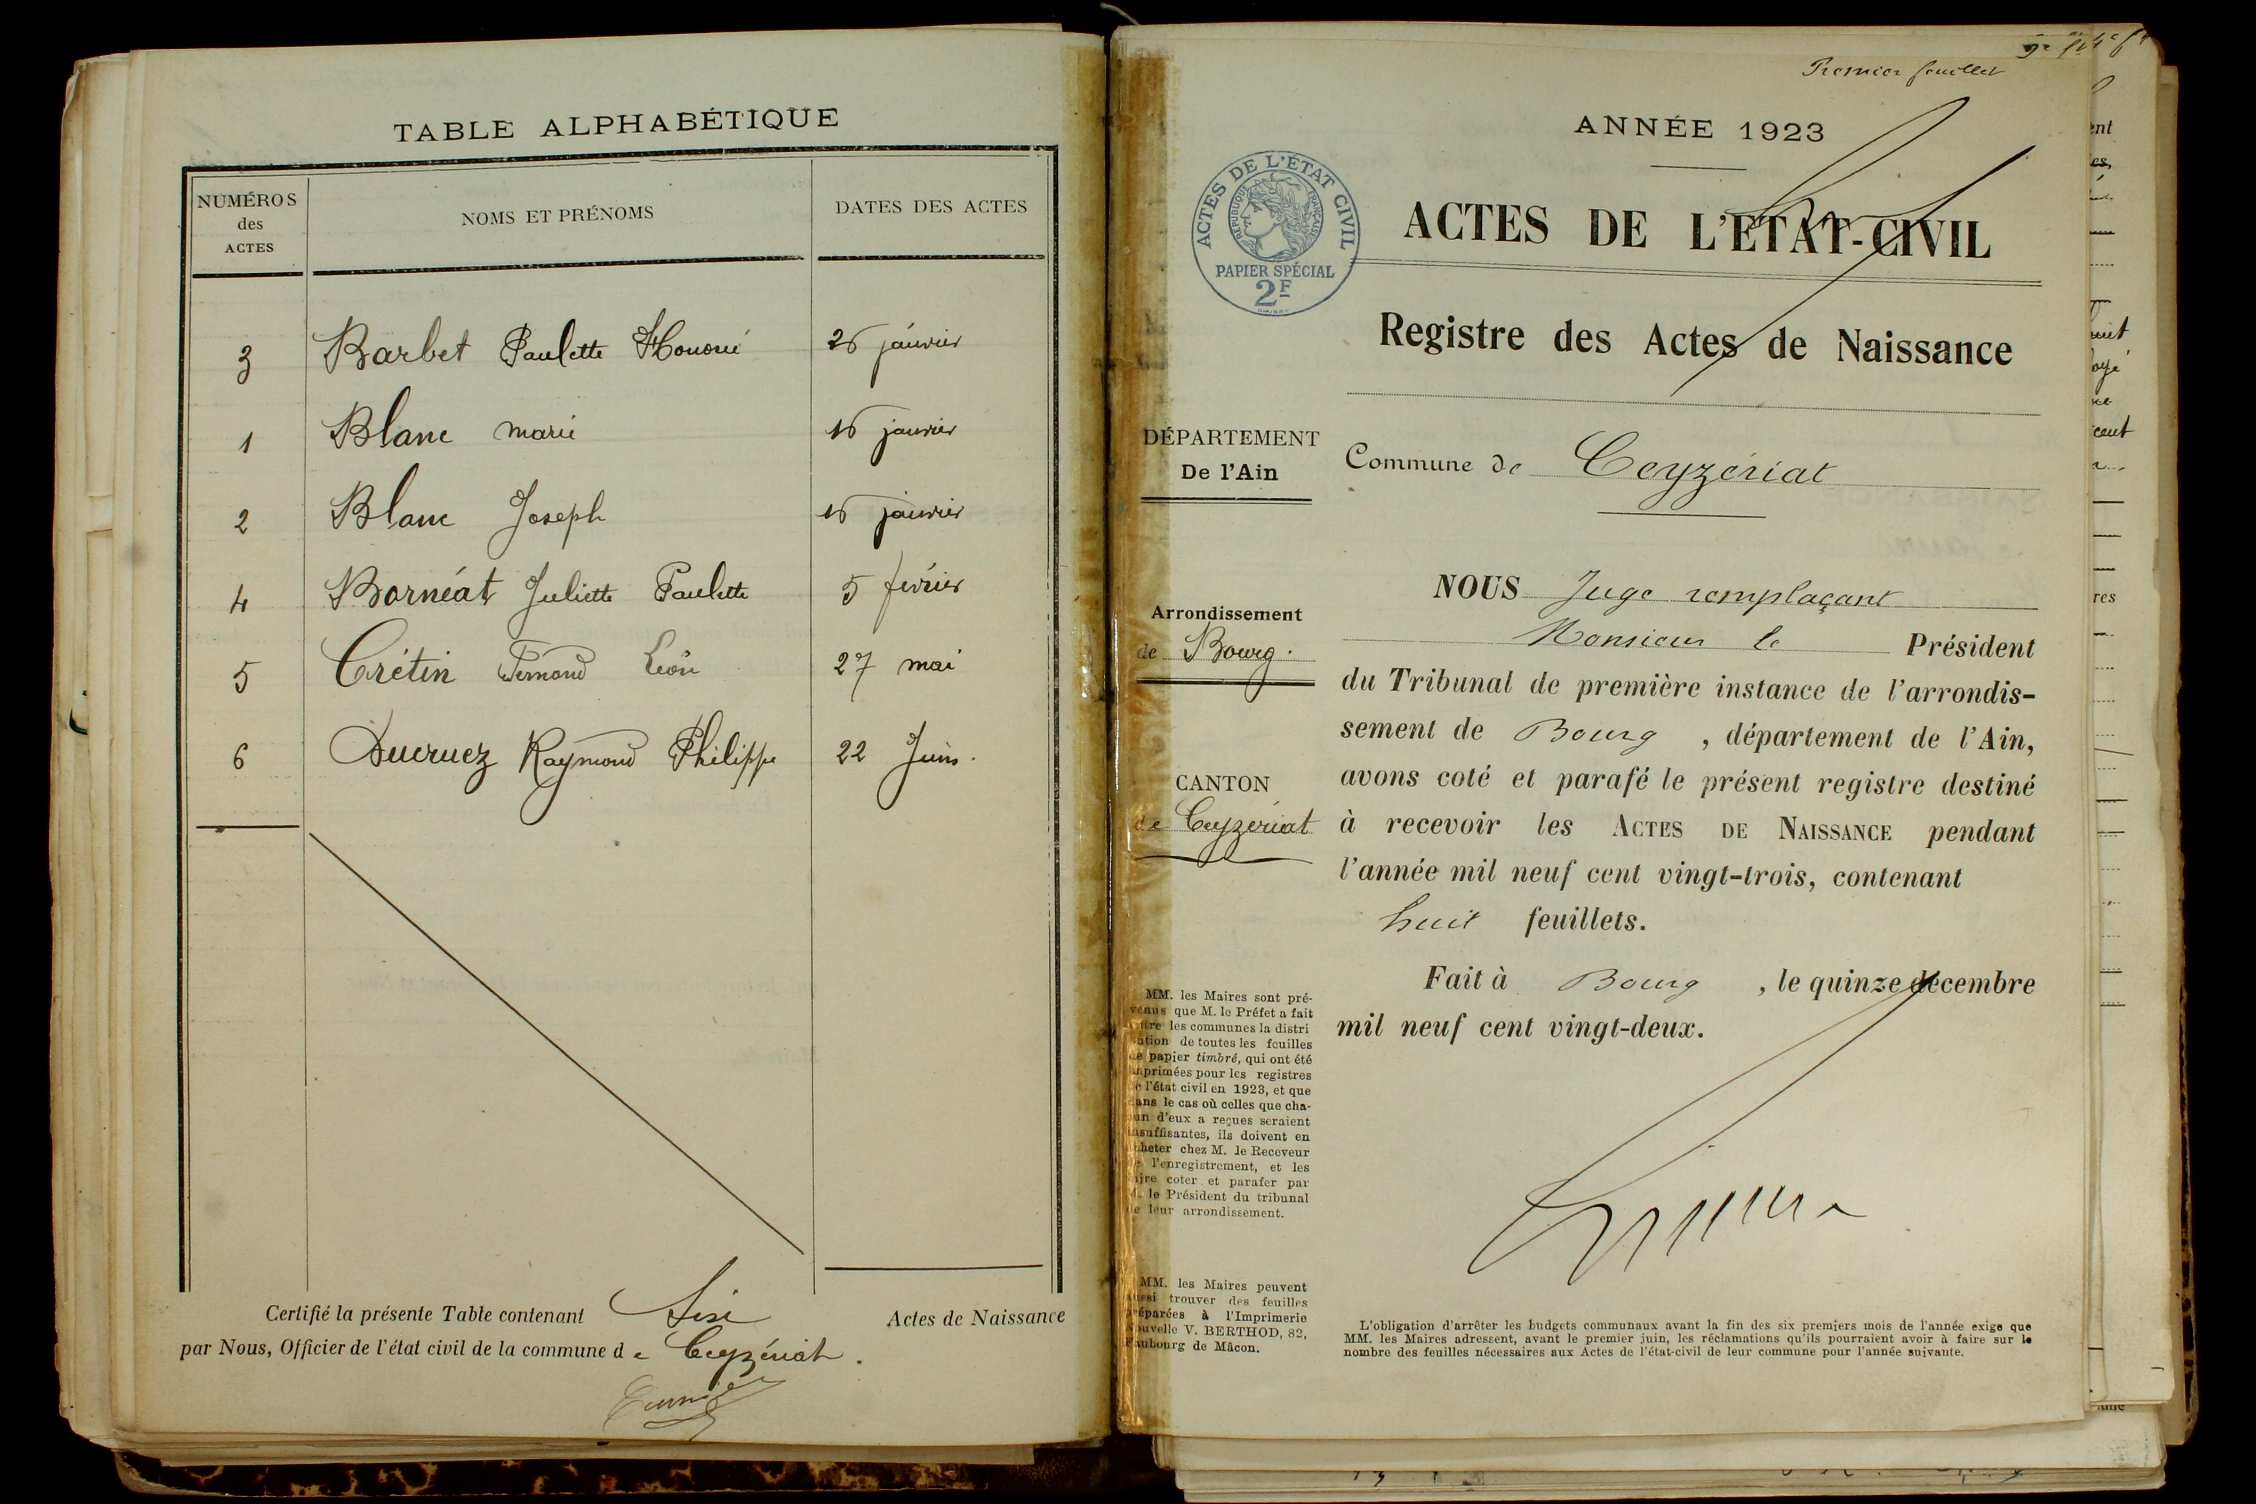 TABLE ALPHABÉTIQUE
NUMÉROS
des
ACTES
NOMS ET PRÉNOMS
DATES DES ACTES
3 Barbet Paulette Honoré 26 janvier
1 Blanc Marie 16 janvier
2 Blanc Joseph 16 janvier
4 Bornéat Juliette Paulette 5 février
5 Crétin Fernand Léon 27 mai
6 Ducruez Raymond Philippe 22 Juin.
Certifié la présente Table contenant Six Actes de Naissance
par Nous, Officier de l'état civil de la commune de Ceyzériat.
Premier feuillet
ANNÉE 1923
ACTES DE L'ÉTAT CIVIL
RÉPUBLIQUE FRANÇAISE
PAPIER SPÉCIAL
2F
ACTES DE L'ETAT-CIVIL
Registre des Actes de Naissance
DÉPARTEMENT
De l'Ain
Commune de Ceyzériat
Arrondissement
de Bourg.
CANTON
de Ceyzériat
NOUS Juge remplaçant
Monsieur le Président
du Tribunal de première instance de l'arrondis-
sement de Bourg, département de l'Ain,
avons coté et parafé le présent registre destiné
à recevoir les ACTES DE NAISSANCE pendant
l'année mil neuf cent vingt-trois, contenant
huit feuillets.
Fait à Bourg, le quinze décembre
mil neuf cent vingt-deux.
MM. les Maires sont pré-
venus que M. le Préfet a fait
les communes la distri
de toutes les feuilles
de papier timbré, qui ont été
imprimées pour les registres
de l'état civil en 1923, et que
dans le cas où celles que cha-
cun d'eux a reçues seraient
insuffisantes, ils doivent en
acheter chez M. le Receveur
de l'enregistrement, et les
faire coter et parafer par
M. le Président du tribunal
de leur arrondissement.
MM. les Maires peuvent
aussi trouver des feuilles
préparées à l'Imprimerie
Nouvelle V. BERTHOD, 82,
Faubourg de Mâcon.
L'obligation d'arrêter les budgets communaux avant la fin des six premiers mois de l'année exige que
MM. les Maires adressent, avant le premier juin, les réclamations qu'ils pourraient avoir à faire sur le
nombre des feuilles nécessaires aux Actes de l'état-civil de leur commune pour l'année suivante.